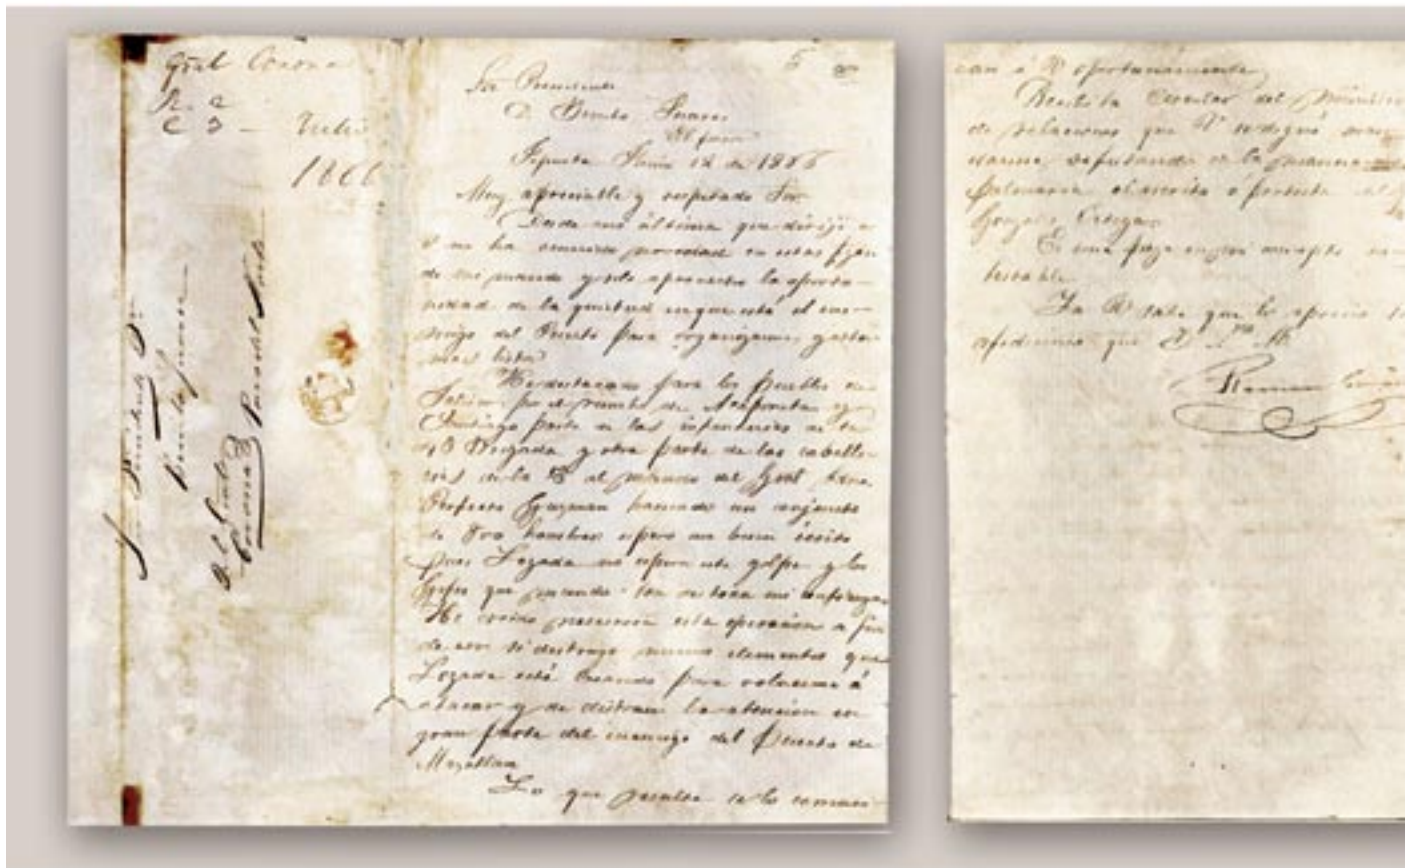 Gral Corona
R. a
C 3 — Julio
1866
Sor Presidente Dn
Benito Juarez
Del Gral
Corona Paso del Norte
5
Sor Presidente
D. Benito Juarez
El paso
Junio 12 de 1866
Muy apreciable y respetado Sor.
Desde mi última que dirijí a
V no ha ocurrido novedad en estas fzas
de mi mando y solo aprovecho la oportu-
nidad de la quietud en que está el ene-
migo del Puerto para organizarme y estar
mas listo
He destacado para los pueblos de
Jalisco por el rumbo de Acaponeta y
Santiago parte de las infanterias de la
Brigada y otra parte de las caballe-
rias de la al mando del Gral
Perfecto Guzman haciendo un conjunto
de 800 hombres espero un buen écsito
pues Lozada no espera este golpe y los
Gefes que mando son de toda mi confianza
He creido necesaria esta operacion a fin
de ver si destruyo nuevos elementos que
Lozada está creando para volverme á
atacar y de distraer la atencion en
gran parte del enemigo del Puerto de
Mazatlan
Lo que resulte se lo comuni-
caré á V oportunamente
Recibí la Circular del Ministro
de relaciones que V se dignó
de la manera
palmaria el escrito ó protesta del
Gonzalez Ortega
Es una pieza en mi concepto
testable
Sa V sabe que lo aprecia su
afectisimo que
Ramon Corona